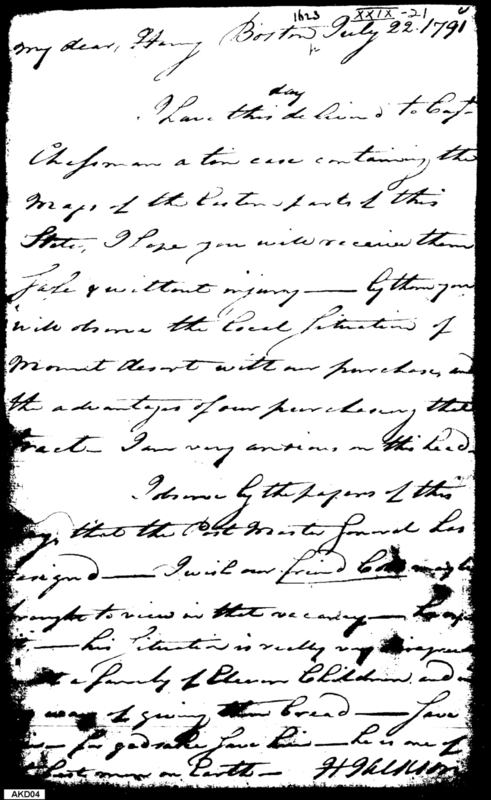 1623 XXIX-21
My dear, Harry Boston July 22. 1791
day
I have this delivered to Capt
Cheesman a tin case containing the
Maps of the Eastern parts of this
State, I hope you will receive them
safe & without injury — by them you
will observe the local Situation of
Mount desert with our purchase, and
the advantages of our purchasing that
tract — I am very anxious on this head —
I observe by the papers of this
day, that the Post Master General has
resigned — I wish our friend may be
brought to view in that vacancy —
it — his Situation is really very
a family of Eleven Children and no
way of giving them bread — Save
him — for godsake save him — he is one of
the best men on Earth — H Jackson
AKD04